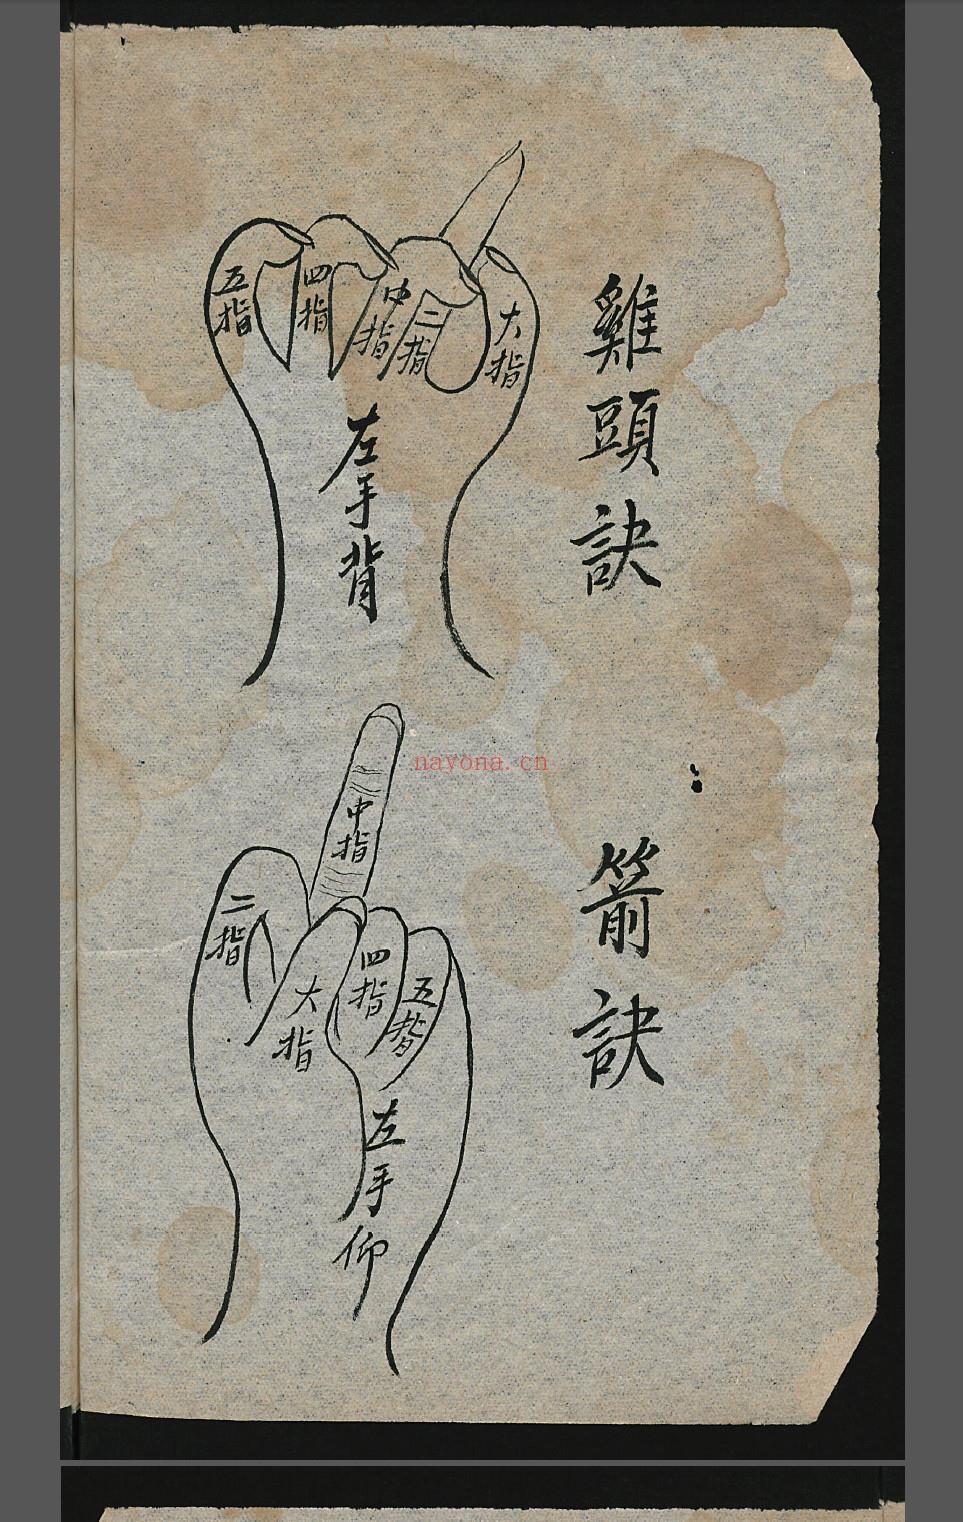 雞頭訣
大指
二指
中指
四指
五指
左手背
nayona.cn
箭訣
中指
二指
大指
四指
五指
左手仰